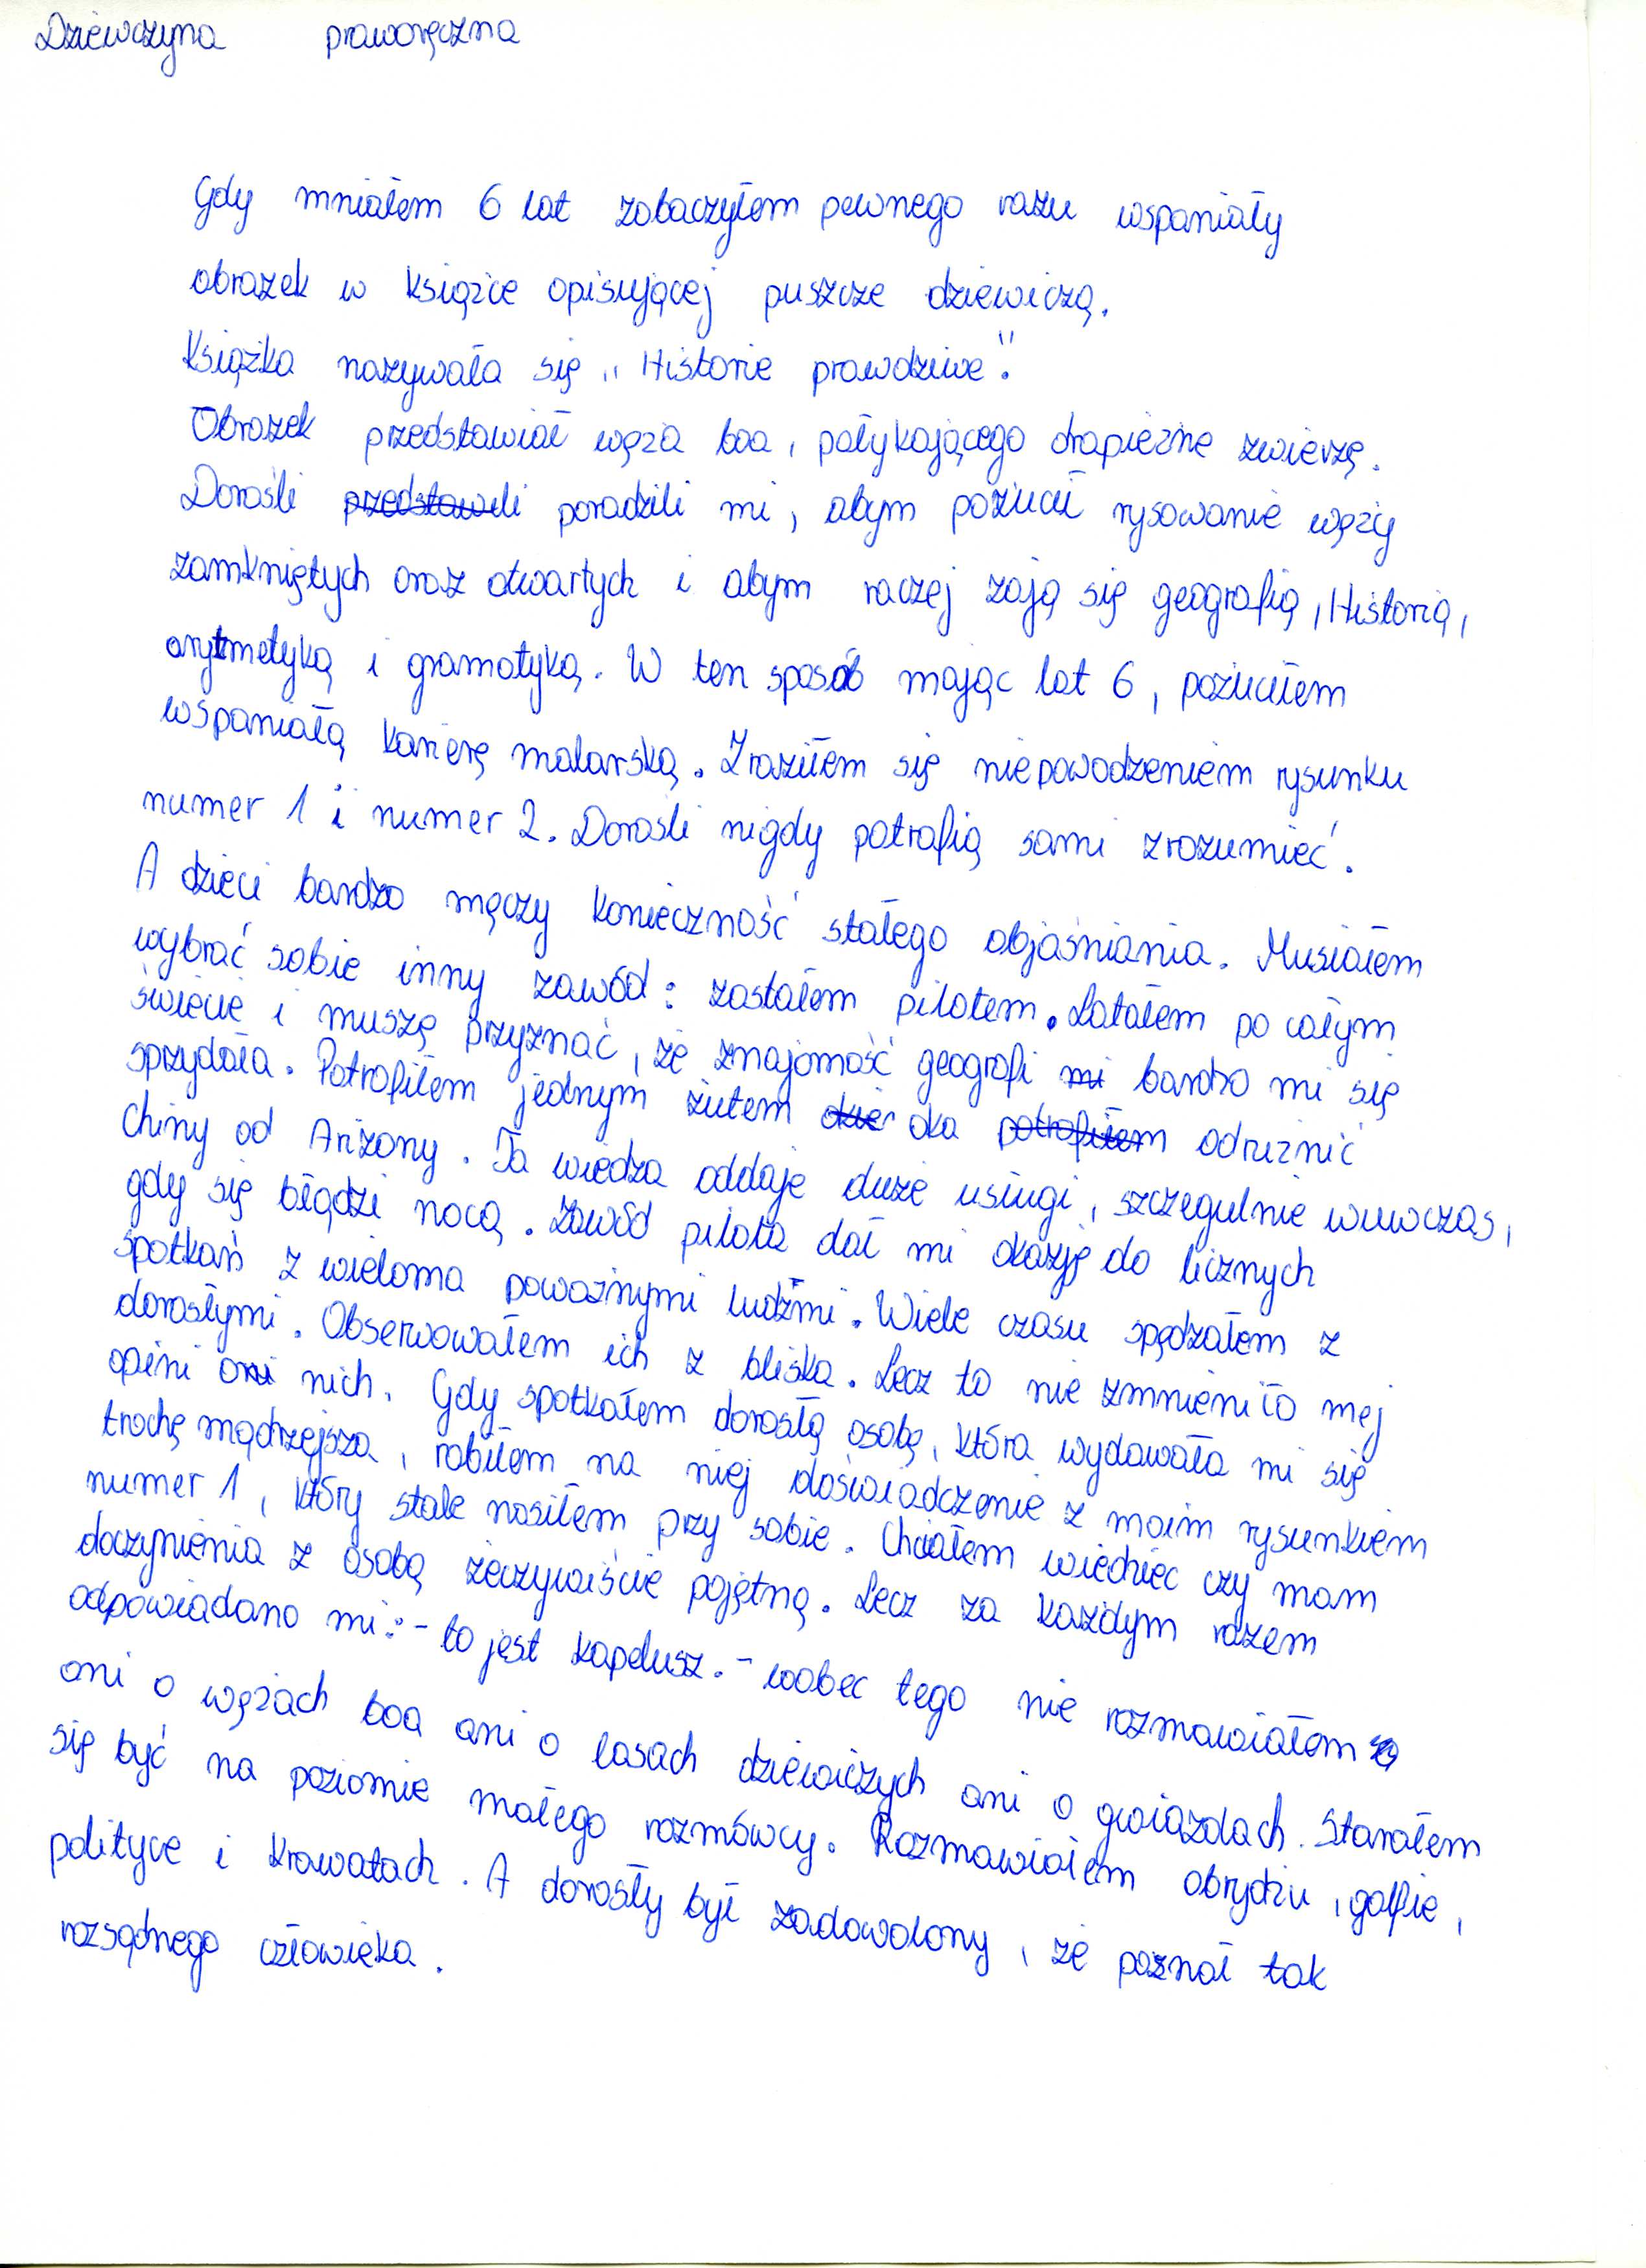 Dziewczyna praworęczna
Gdy mniałem 6 lat zobaczyłem pewnego razu wspaniały
obrazek w książce opisującej puszcze dziewiczą.
Książka nazywała się „Historie prawdziwe".
Obrazek przedstawiał węża boa, połykającego drapieżne zwierzę.
Dorośli przedstawili poradzili mi, abym pożucił rysowanie węży
zamkniętych oraz otwartych i abym raczej zają się geografią, Historią,
arytmetyką i gramatyką. W ten sposób mając lat 6, pożuciłem
wspaniałą karierę malarską. Zraziłem się niepowodzeniem rysunku
numer 1 i numer 2. Dorośli nigdy potrafią sami zrozumieć.
A dzieci bardzo męczy konieczność stałego objaśniania. Musiałem
wybrać sobie inny zawód: zostałem pilotem. Latałem po całym
świecie i muszę przyznać, że znajomość geografi mi bardzo mi się
sprzydała. Potrafiłem jednym żutem oka potrafiłem odrużnić
Chiny od Arizony. Ta wiedza oddaje duże usługi, szczegulnie wuwczas,
gdy się błądzi nocą. Zawód pilota dał mi okazję do licznych
spotkań z wieloma poważnymi ludźmi. Wiele czasu spędzałem z
dorosłymi. Obserwowałem ich z bliska. Lecz to nie zmnieniło mej
opini o nich. Gdy spotkałem dorosłą osobę, która wydawała mi się
trochę mądrzejsza, robiłem na niej doświadczenie z moim rysunkiem
numer 1, który stale nosiłem przy sobie. Chciałem wiedzieć czy mam
doczynienia z osobą żeczywiście pojętną. Lecz za każdym razem
odpowiadano mi: - to jest kapelusz. - wobec tego nie rozmawiałem
ani o wężach boa ani o lasach dziewiczych ani o gwiazdach. Starałem
się być na poziomie małego rozmówcy. Rozmawiałem obrydżu, golfie,
polityce i krawatach. A dorosły był zadowolony, że poznał tak
rozsądnego człowieka.